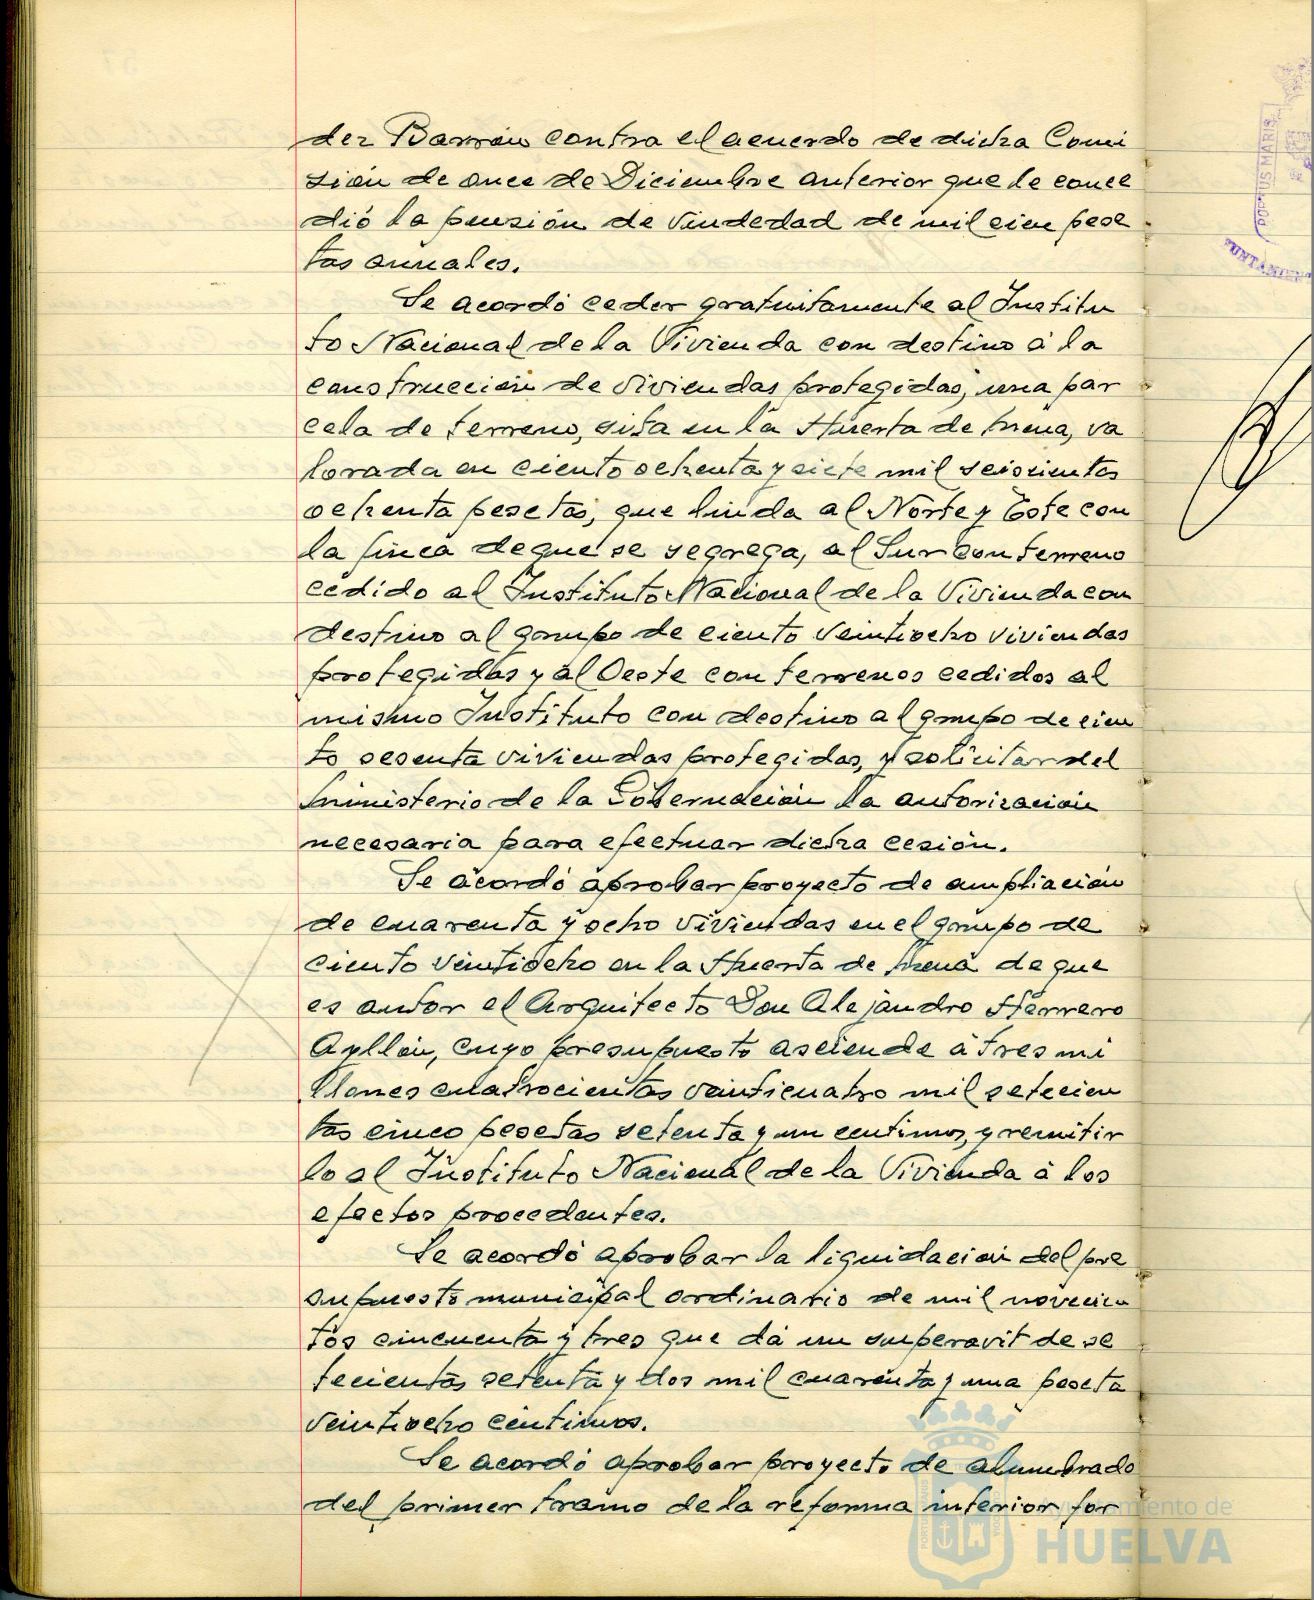 dez Barrón contra el acuerdo de dicha Comi
sión de once de Diciembre anterior que le conce
dió la pensión de viudedad de mil cien pese
tas anuales.
Se acordó ceder gratuitamente al Institu
to Nacional de la Vivienda con destino á la
construcción de viviendas protegidas, una par
cela de terreno, sita en la Huerta de Mena, va
lorada en ciento ochenta y siete mil seiscientas
ochenta pesetas, que linda al Norte y Este con
la finca de que se segrega, al Sur con terreno
cedido al Instituto Nacional de la Vivienda con
destino al grupo de ciento veintiocho viviendas
protegidas y al Oeste con terrenos cedidos al
mismo Instituto con destino al grupo de cien
to sesenta viviendas protegidas, y solicitar del
Ministerio de la Gobernación la autorización
necesaria para efectuar dicha cesión.
Se acordó aprobar proyecto de ampliación
de cuarenta y ocho viviendas en el grupo de
ciento veintiocho en la Huerta de Mena de que
es autor el Arquitecto Don Alejandro Herrero
Ayllón, cuyo presupuesto asciende á tres mi
llones cuatrocientas veinticuatro mil setecien
tas cinco pesetas setenta y un centimos, y remitir
lo al Instituto Nacional de la Vivienda á los
efectos procedentes.
Se acordó aprobar la liquidación del pre
supuesto municipal ordinario de mil novecien
tos cincuenta y tres que dá un superavit de se
tecientas setenta y dos mil cuarenta y una peseta
veintiocho céntimos.
Se acordó aprobar proyecto de alumbrado
del primer tramo de la reforma interior for
PORTUS MARIS
Ayuntamiento de
HUELVA